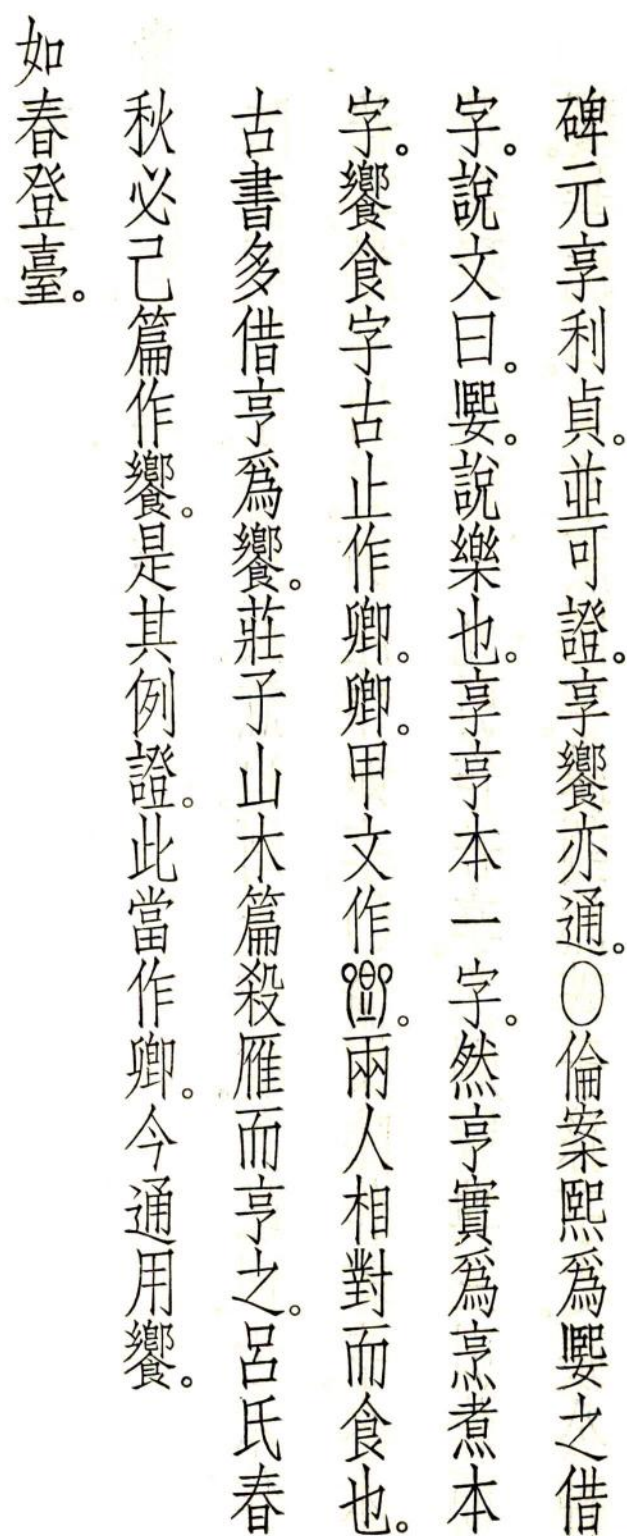 碑元享利貞。並可證。享饗亦通。〇倫案熙爲媐之借
字。說文曰。媐。說樂也。享亨本一字。然亨實爲烹煮本
字。饗食字古止作卿。卿。甲文作。兩人相對而食也。
古書多借亨爲饗。莊子山木篇殺雁而亨之。呂氏春
秋必己篇作饗。是其例證。此當作卿。今通用饗。
如春登臺。